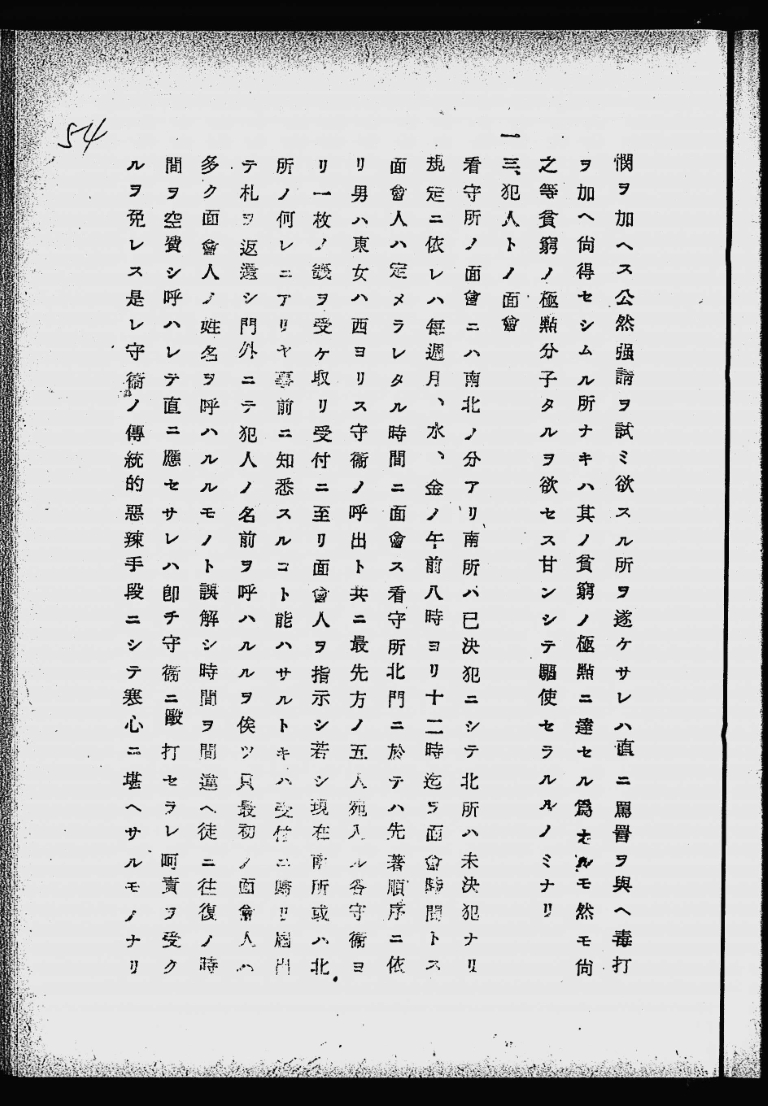 54
憫ヲ加ヘス公然强請ヲ試ミ欲スル所ヲ遂ケサレハ直ニ罵詈ヲ與ヘ毒打
ヲ加ヘ尙得セシムル所ナキハ其ノ貧窮ノ極點ニ達セル爲ナルモ然モ尙
之等貧窮ノ極點分子タルヲ欲セス甘ンシテ驅使セラルルノミナリ
一三、犯人トノ面會
看守所ノ面會ニハ南北ノ分アリ南所ハ已決犯ニシテ北所ハ未決犯ナリ
規定ニ依レハ每週月、水、金ノ午前八時ヨリ十二時迄ヲ面會時間トス
面會人ハ定メラレタル時間ニ面會ス看守所北門ニ於テハ先著順序ニ依
リ男ハ東女ハ西ヨリス守衞ノ呼出ト共ニ最先方ノ五人宛入ル各守衞ヨ
リ一枚ノ籤ヲ受ケ取リ受付ニ至リ面會人ヲ指示シ若シ現在南所或ハ北
所ノ何レニアリヤ事前ニ知悉スルコト能ハサルトキハ受付ニ
テ札ヲ返還シ門外ニテ犯人ノ名前ヲ呼ハルルヲ俟ツ只最初ノ面會人ハ
多ク面會人ノ姓名ヲ呼ハルルモノト誤解シ時間ヲ間違ヘ徒ニ往復ノ時
間ヲ空費シ呼ハレテ直ニ應セサレハ卽チ守衞ニ毆打セラレ呵責ヲ受ク
ルヲ免レス是レ守衞ノ傳統的惡辣手段ニシテ寒心ニ堪ヘサルモノナリ